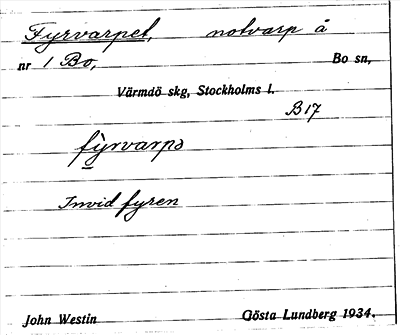 Fyrvarpet, notvarp å
nr 1 Bo, Bo sn,
Värmdö skg, Stockholms l.
B17
fỳrvarpə
Invid fyren
John Westin Gösta Lundberg 1934.